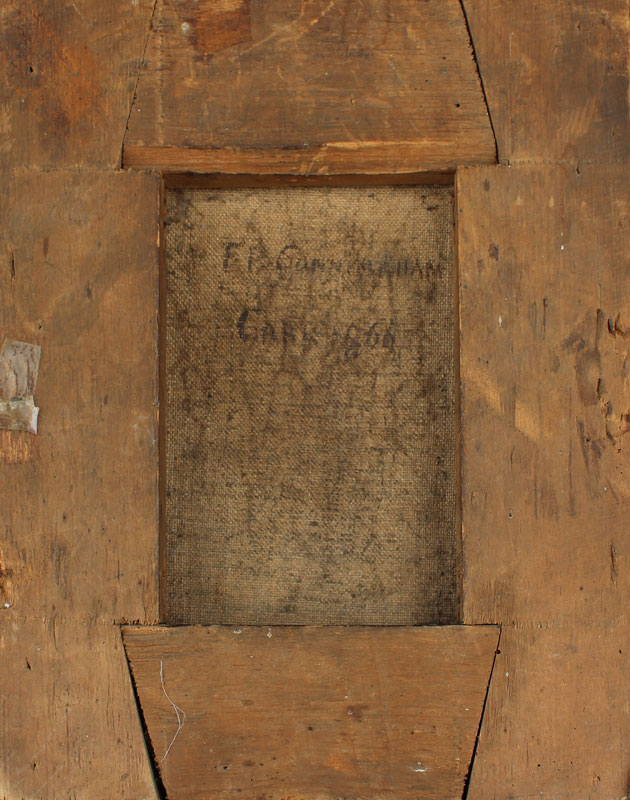 E F CUNNINGHAM
CARR 1866